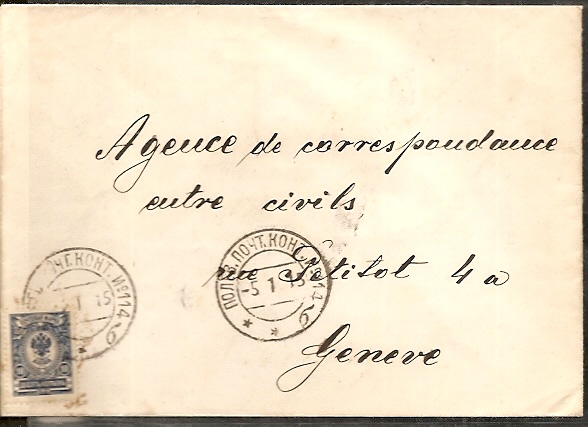 Agence de correspondance
entre civils
rue Petitot 4 a
Genève
ПОЛЕВ. ПОЧТ. КОНТ. № 114
-5 1 15
ПОЧТ. КОНТ. № 114
1 15